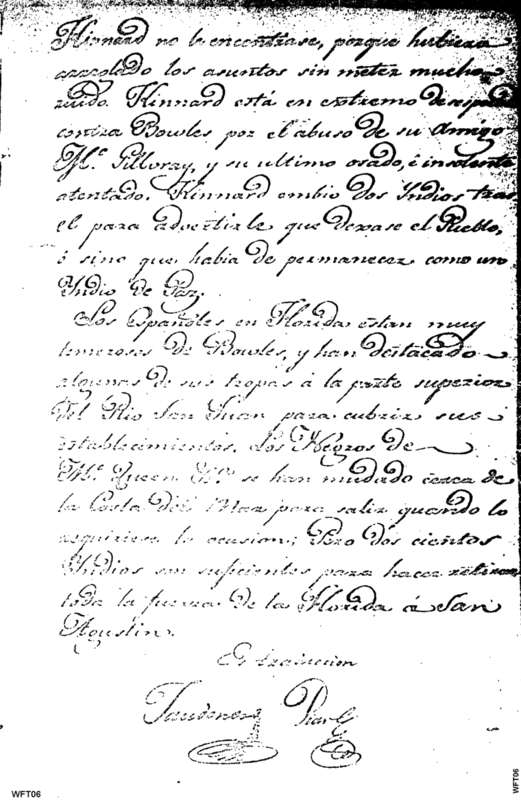 Kinnard no le encontrase, porque hubiera
arreglado los asuntos sin meter mucho
ruido. Kinnard está en extremo
contra Bowles por el abuso de su Amigo
Mc. Gillvray, y su ultimo osado, é insolente
atentado. Kinnard embio dos Indios tras
el para advertirle que dexase el Pueblo,
ó sino que habia de permanecer como un
Indio de Paz.
Los Españoles en Florida estan muy
temerosos de Bowles, y han destacado
algunas de sus tropas á la parte superior
del Rio San Juan para cubrir sus
establecimientos. Los Negros de
Mc. Queen se han mudado cerca de
la Costa del Mar para salir quando lo
requiriese la ocasion; Pero dos cientos
Indios son suficientes para hacer retirar
toda la fuerza de la Florida á San
Agustin.
Es traduccion
WFT06
WFT06